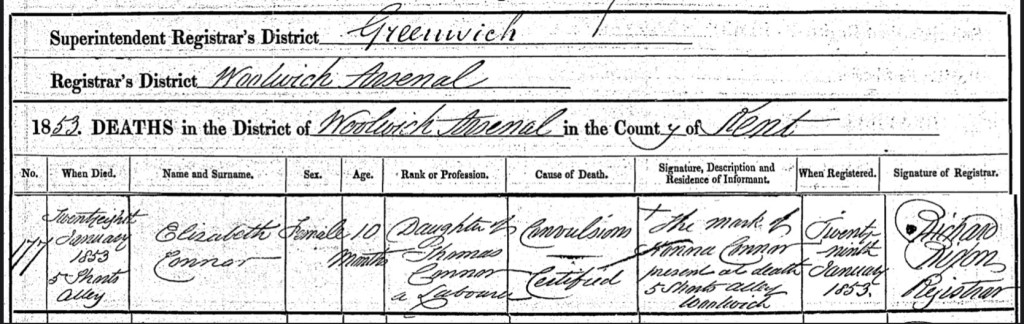 Superintendent Registrar's District Greenwich
Registrar's District Woolwich Arsenal
1853. DEATHS in the District of Woolwich Arsenal in the County of Kent
No. When Died. Name and Surname. Sex. Age. Rank or Profession. Cause of Death. Signature, Description and Residence of Informant. When Registered. Signature of Registrar.
177
Twenty eight
January
1853
5 Shorts
Alley
Elizabeth
Connor
Female
10
Months
Daughter of
Thomas
Connor
a Labourer
Convulsions
Certified
The mark of
Honora Connor
present at death
5 Shorts Alley
Woolwich
Twenty
ninth
January
1853.
Richard
Registrar